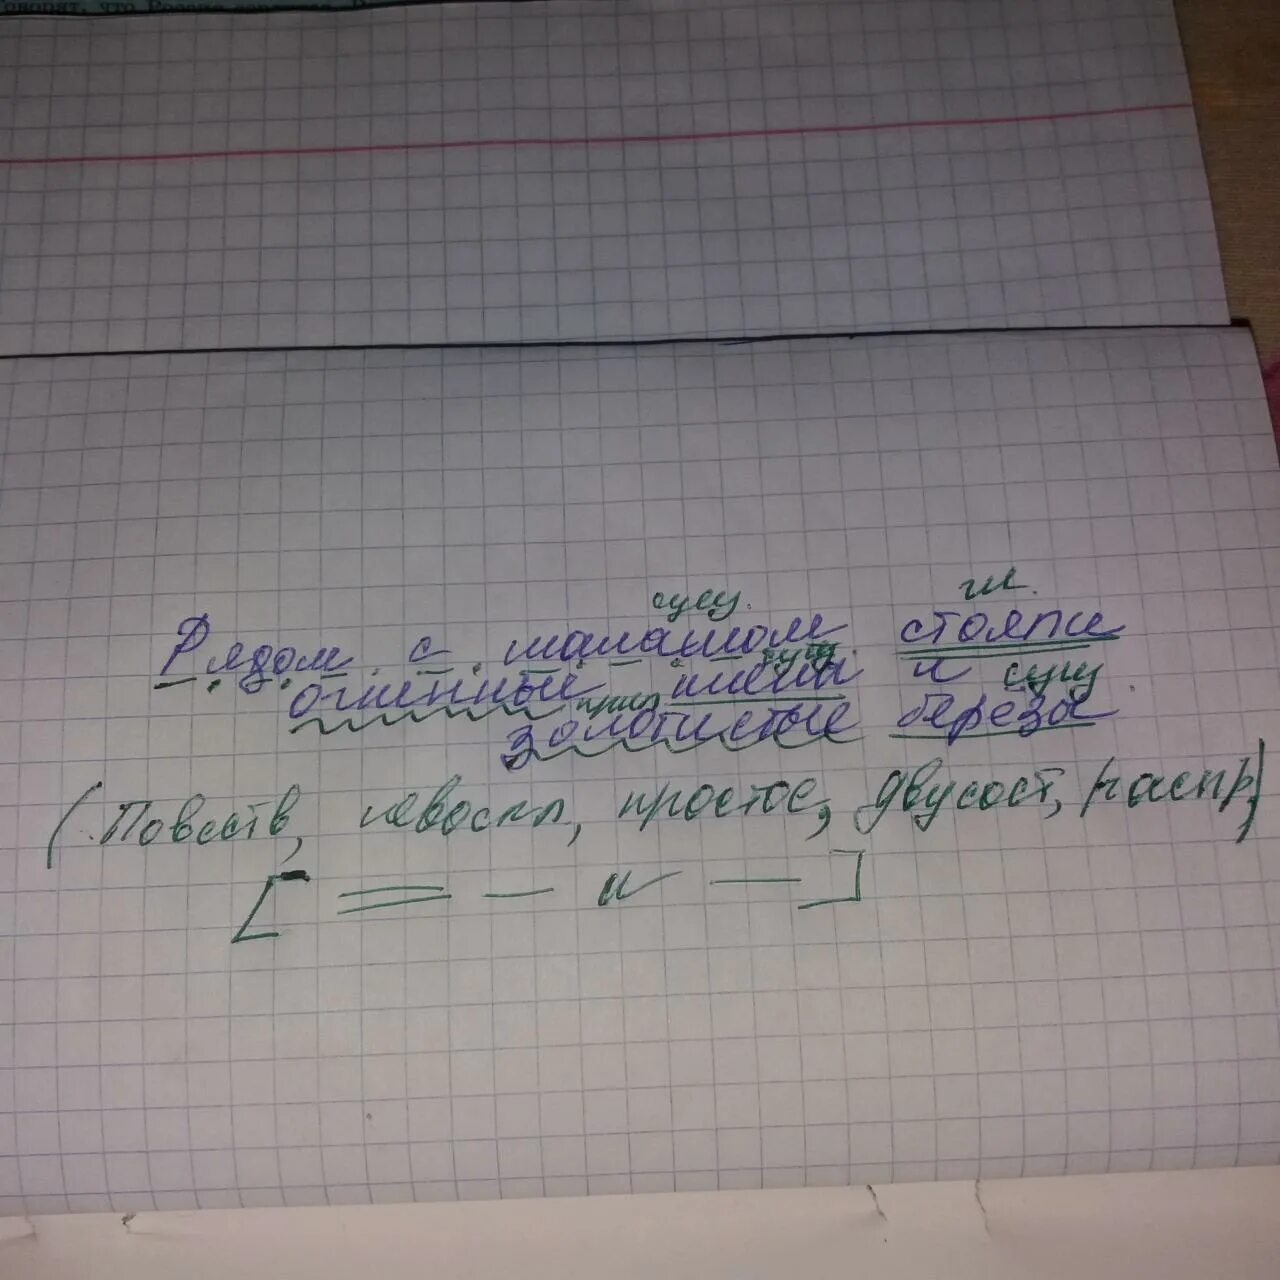 говорят, что Россия
сущ. гл.
Рядом с шалашом стояли
сущ.
огненные клёны и сущ.
прил
золотистые берёзы
(Повеств, невоскл, простое, двусост, распр)
[ = — и — ]